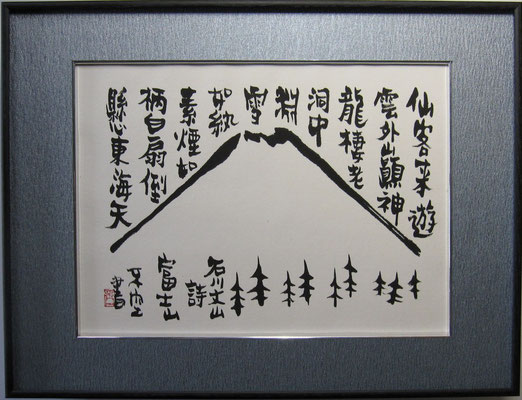 仙客来遊
雲外山顚神
龍棲老
洞中
淵
雪
如紈
素煙如
柄白扇倒
懸東海天
石川丈山
詩
富士山